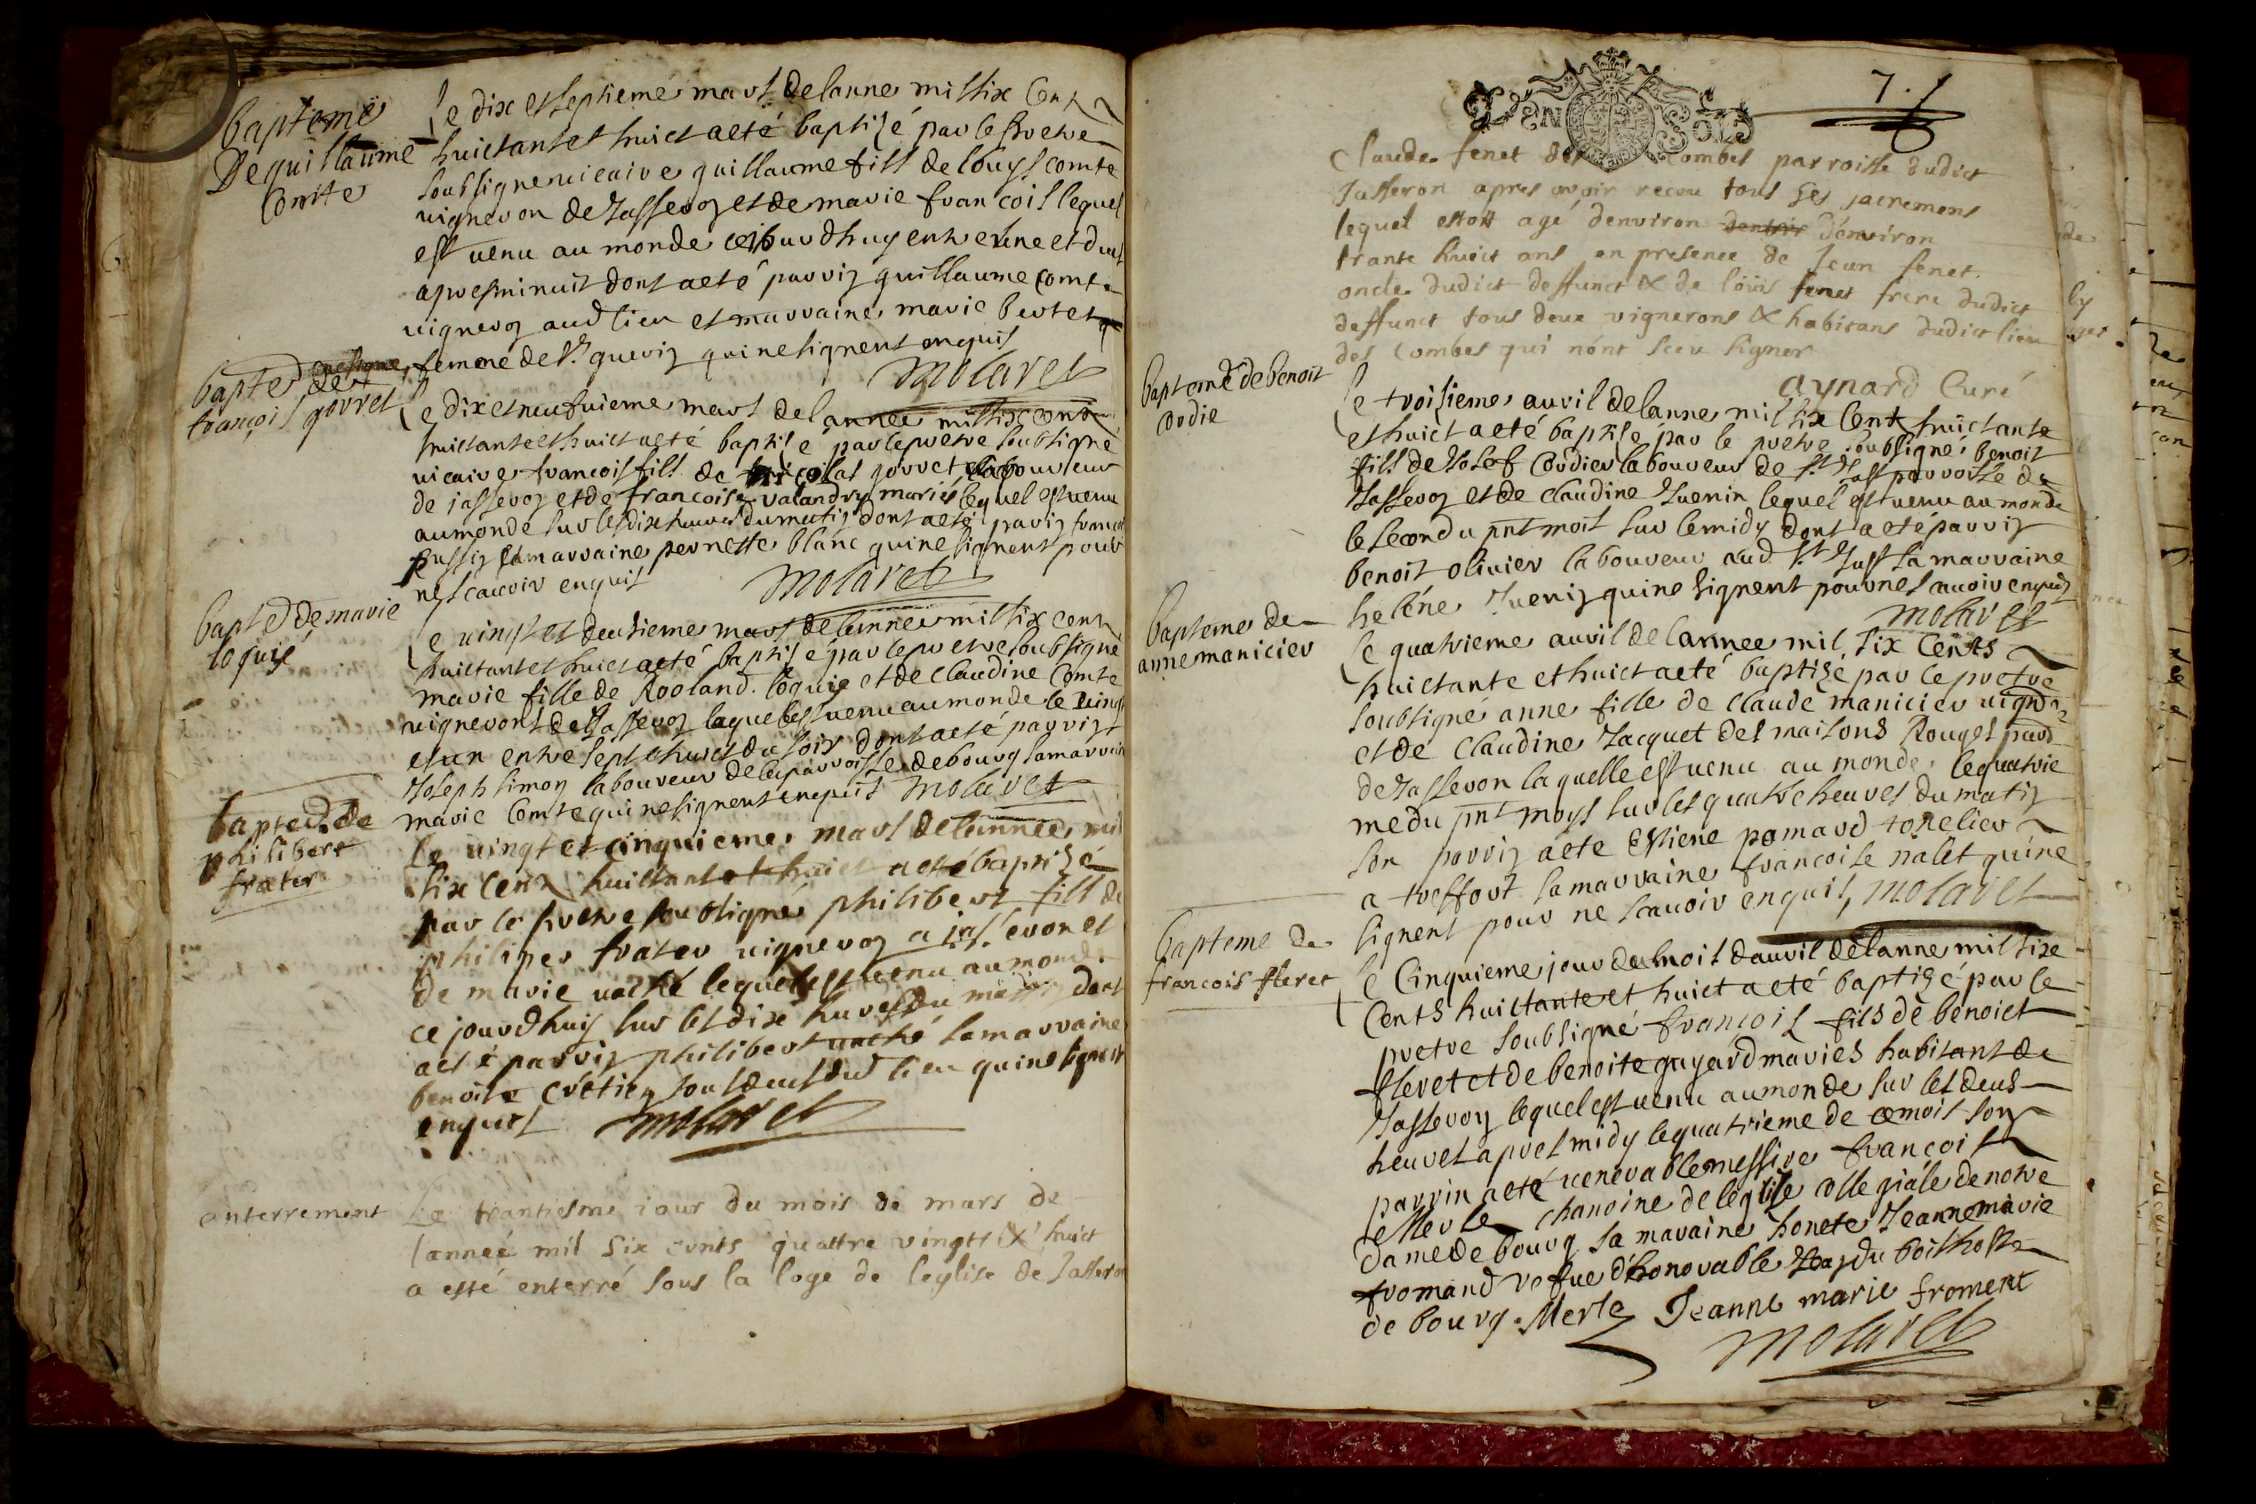 bapteme
De guillaume
Comte
Le dix et septieme mars de lanne mil six Cent
huictant et huict a eté baptizé par le pretre
soubsigne vicaire guillaume fils de louys comte
vigneron de Jasseron et de marie francois lequel
est venu au monde ce jourdhuy entre une et deus
apres minuit dont a eté parrin guillaume comte
vigneron aud lieu et marraine marie bertet
femme de guerin qui ne signent enquis
molaret
bapte de
francois gorret
Le dix et neufvieme mars de lannee mil six cent
huictante et huict a eté baptisé par le pretre soubsigné
vicaire francois fils de nicolas gorret laboureur
de jasseron et de francoise valandry mariés lequel est venu
au monde sur les dix heures du matin dont a eté parrin francois
sa marraine pernette blanc qui ne signent pour
ne scavoir enquis molaret
bapte de marie
loquié
Le vingt et deusieme mars de lannee mil six cent
huictant et huict a eté baptisé par le pretre soubsigné
marie fille de Rooland loquie et de Claudine Comte
vignerons de Jasseron laquele est venu au monde le vingt
et un entre sept et huict du soir dont a eté parrin
Joseph simon laboureur de la parroisse de bourg sa marraine
marie Comte qui ne signent enquis molaret
bapte de
philibert
frater
Le vingt et cinquieme mars de lannee mil
six Cent huictant et huict a eté baptizé
par le pretre soubsigné philibert fils de
philipes frater vigneron a jasseron et
de marie vaché lequel est venu au monde
ce jourdhuy sur les dix heures du matin dont
a eté parrin philibert vaché sa marraine
benoite Crétien tous deus dud lieu qui ne signent
enquis molaret
enterrement
Le trantiesme iour du mois de mars de
lanneé mil six cents quattre vingts & huict
a esté enterré sous la loge de leglise de Jasseron
7.
DEN SOLS
Claude fenet des Combes parroisse dudict
Jasseron apres avoir receu tous ses sacremens
lequel estoit agé denviron denviron
trante huict ans en presence de Jean fenet
oncle dudict deffunct & de löuis fenet frere dudict
deffunct tous deux vignerons & habitans dudict lieu
des Combes qui nónt sceu signer
aynard Curé
baptemé de benoit
Cordie
Le troisieme avril de lanne mil six Cent huictante
et huict a eté baptisé par le pretre soubsigné benoit
fils de Josef Cordier laboureur de st Just parroisse de
Jasseron et de claudine Juenin lequel est venu au monde
le second du pnt mois sur le midy dont a eté parrin
benoit olivier laboureur aud st Just sa marraine
heléne Juenin qui ne signent pour ne scavoir enquis
molaret
bapteme de
anne manicier
Le quatrieme avril de lannee mil six Cents
huictante et huict a eté baptizé par le pretre
soubsigné anne fille de claude manicier vigneron
et de Claudine Jacquet des maisons Rouges pard
de Jasseron laquelle est venu au monde le quatrie
me du pnt moys sur les quatre heures du matin
son parrin a ete Estiene pomard tonelier
a treffort sa marraine francoise nalet qui ne
signent pour ne scavoir enquis, molaret
bapteme de
francois fleret
Le Cinquieme jour du mois davril de lanne mil six
Cents huictante et huict a eté baptizé par le
pretre soubsigné francois fils de benoict
fleret et de benoite guyard mariés habitant de
Jasseron lequel est venu au monde sur les deus
heures apres midy le quatrieme de ce mois son
parrin a eté venerable messire francois
Merle chanoine de léglise collegiále de notre
dame de bourg sa maraine honete Jeanne marie
fromand vefue dhonorable du bois hoste
de bourg. Merle Jeanne marie froment
molaret